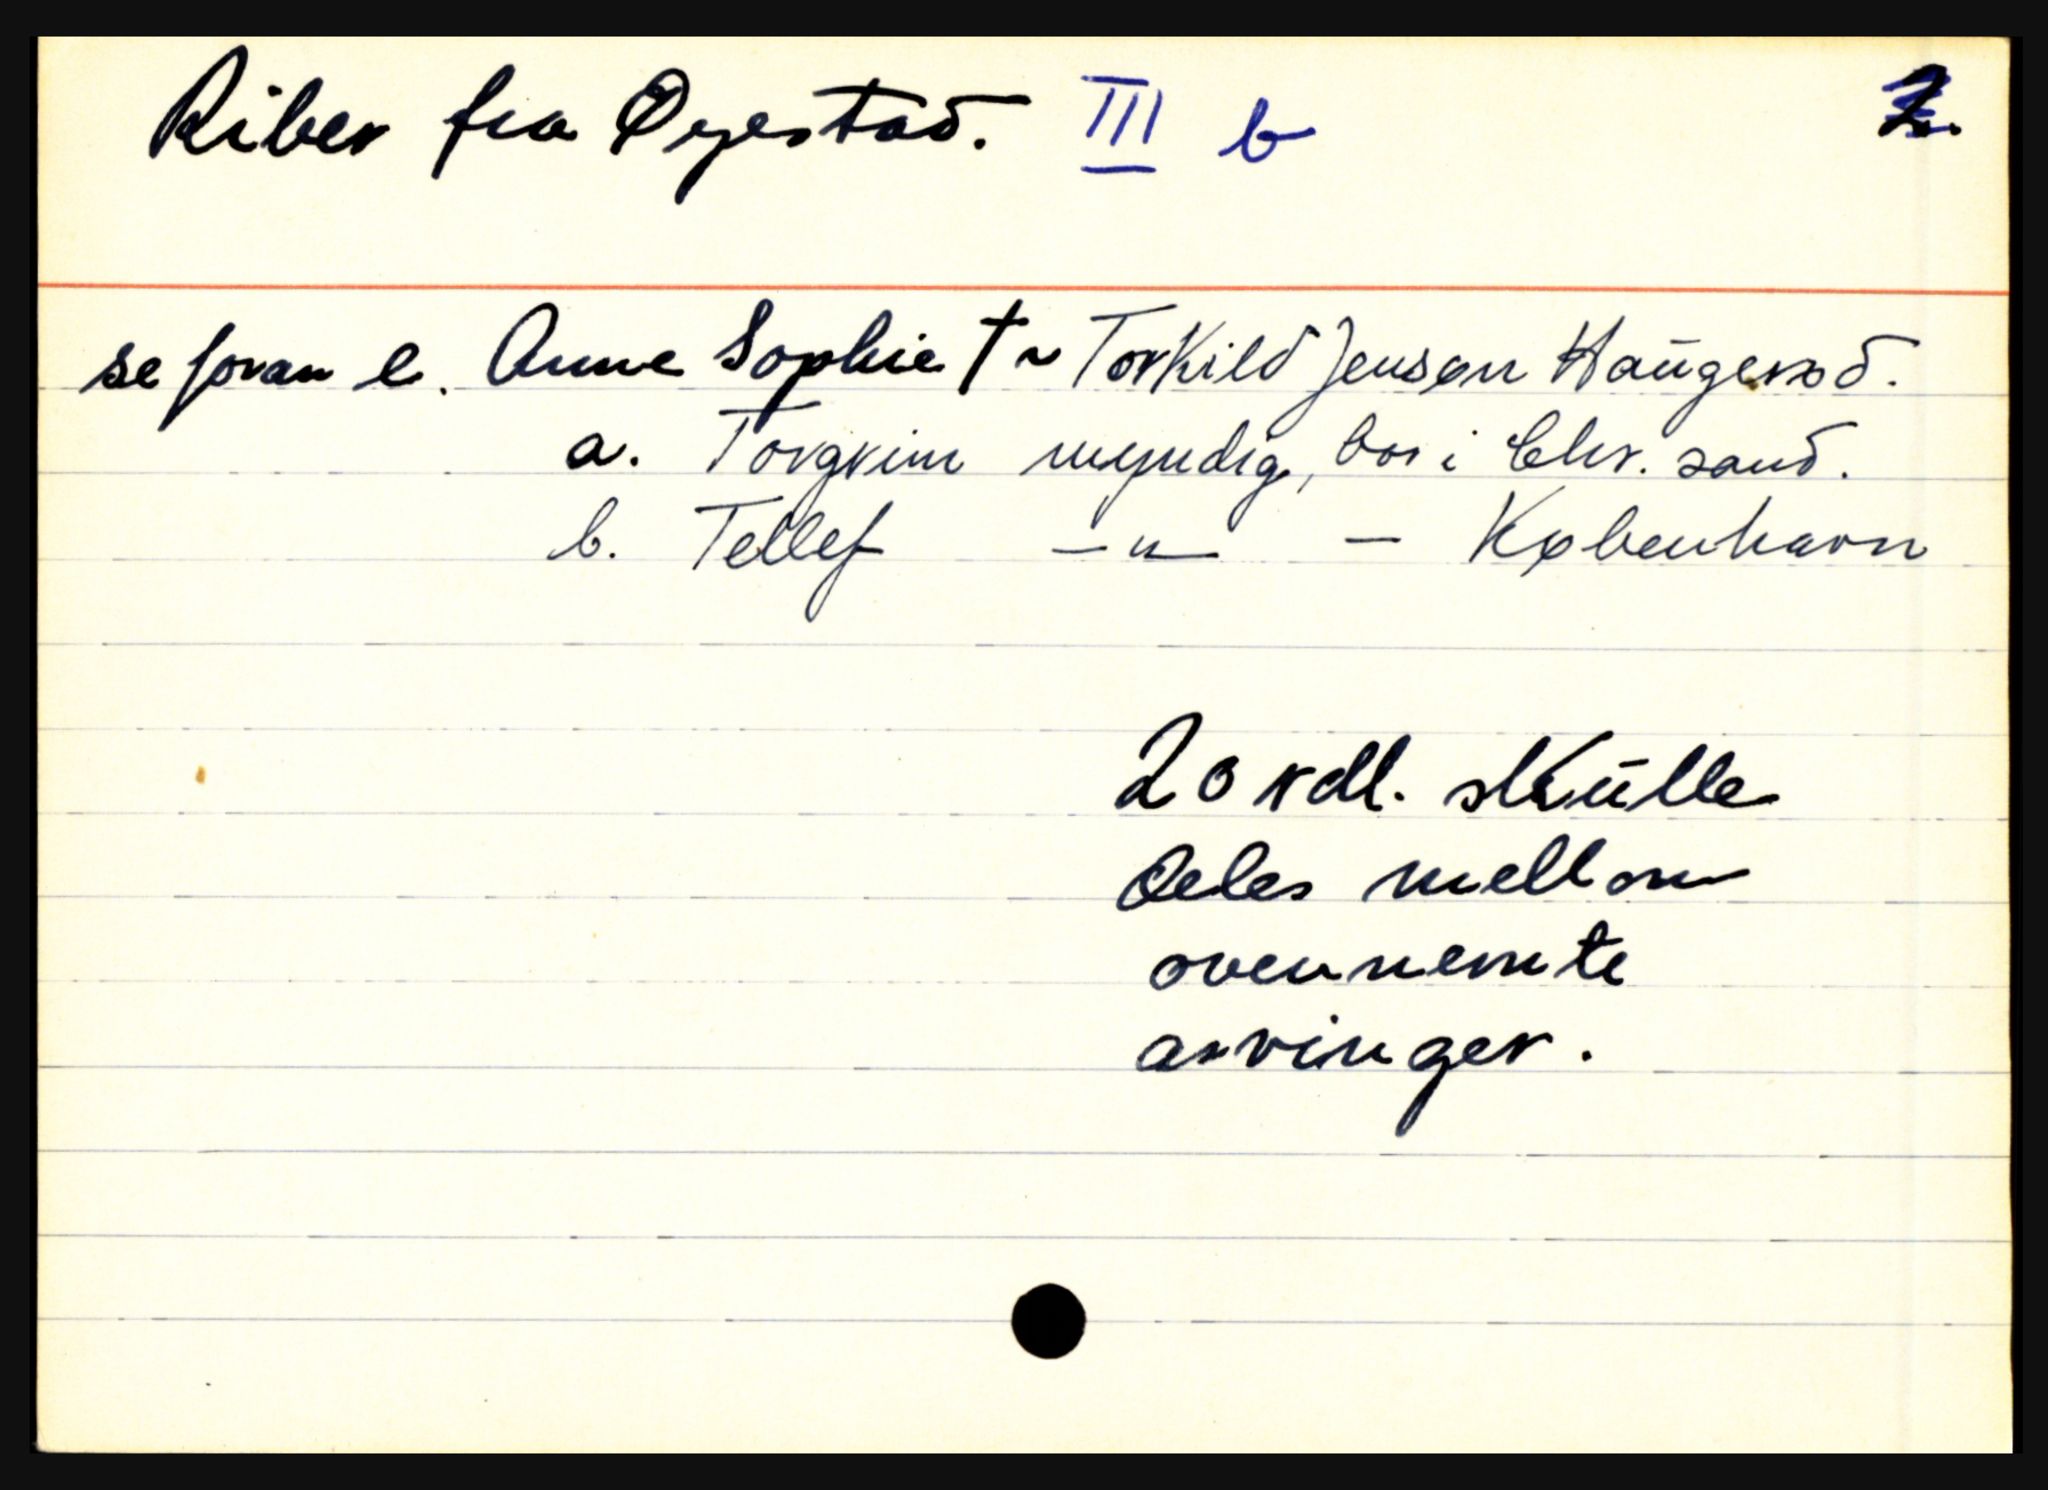 Riber fra Øyestad. III b 2.
se foran e. Anne Sophie † ~ Torkild Jenson Haugerød.
a. Torgrim myndig, bor i Chr. sand.
b. Tellef — " — — København
20 rdl. skulle
deles mellom
ovennemte
arvinger.